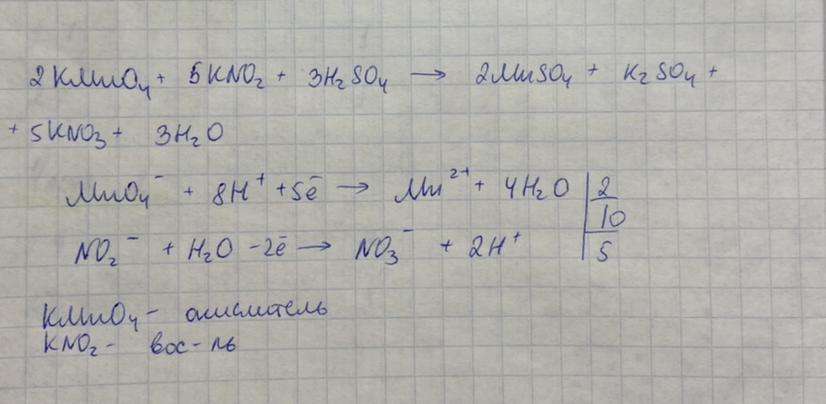 2KMnO₄ + 5KNO₂ + 3H₂SO₄ → 2MnSO₄ + K₂SO₄ +
+ 5KNO₃ + 3H₂O
MnO₄⁻ + 8H⁺ + 5ē → Mn²⁺ + 4H₂O | 2
10
NO₂⁻ + H₂O - 2ē → NO₃⁻ + 2H⁺ | 5
KMnO₄ - окислитель
KNO₂ - вос-ль